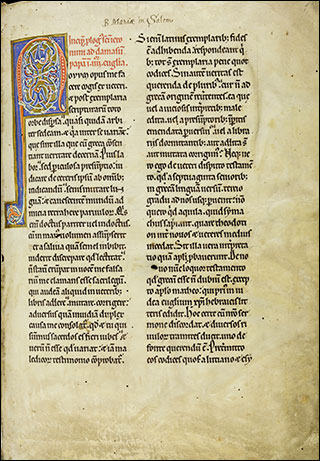 B Mariæ in Salem
Incip̄ plog̃ sc̄i iero
nimi ad damasū
papā ī .iiii. euglia.
ovum opus me fa
cere cogis ex ueteri
ut post exemplaria
scripturarū toto
orbe dispsa. quasi quidā arbi
ter sedeam. & q̄a inter se uariant
que sint illa que cū greca cōsen
tiant ueritate decernā. Pius la
bor. sed piculosa presūptio. iu
dicare de ceteris ipsū ab omnib;
iudicandū. senis mutare lin
guā & canescentē mundū ad
inicia retrahere paruuloꝝ. Quis
enim doctus pariter ut indoctus
cū in manꝰ uolumen assūpserit
& a saliua quā semel inbibit
uiderit discrepare qd lectitat.
nō statī erūpat in uocē me falsa
riū me clamans esse sacrilegū.
qui audeā aliquid in ueterib;
libris addere. mutare. corrigere.
aduersus quā inuidiā duplex
causa me consolat̃. qd & tu qui
summus sacerdos es fieri iubes. &
uerū n̄ esse qd uariat. etiā ma
ledicoꝝ testimonio cōprobat̃.
Si enī latinis exemplarib; fides
ē adhibenda. respondeant q̄
b;. tot sī exemplaria pene quot
codices. Sin autē ueritas est
querenda de plurib;. cur nō ad
grecā originē reuertētes. ea que
uel a uiciosis inītpretib; male
edita. uel a presūptorib; ipitis
emendata puersiꝰ. uel a libra
riis dormitantib; aut addita sī
aut mutata corrigimꝰ. Neq; ue
ro ego de ueteri disputo testamē
to. qd a septuaginta seniorib;
in grecā linguā uersū. tercio
gradu ad nos usq; puenit. nō
quero qd aquila. quid sȳma
chus sapiant. quare theodotion
inī nouos & ueteres medius
incedat. Sit illa uera inīpreta
tio quā apli pbauerunt. De no
uo nūc loquor testamento
qd grecū esse nō dubiū est. excep
to aplo matheo. qui prim' in iu
dea euglium xpi hebraicis lit
teris edidit. Hoc certe cū nr̄o ser
mone discordat. & diuersos ri
uuloꝝ tramites ducit. uno de
fonte querendū ē. Pretmitto
eos codices quos a lutiano & esy